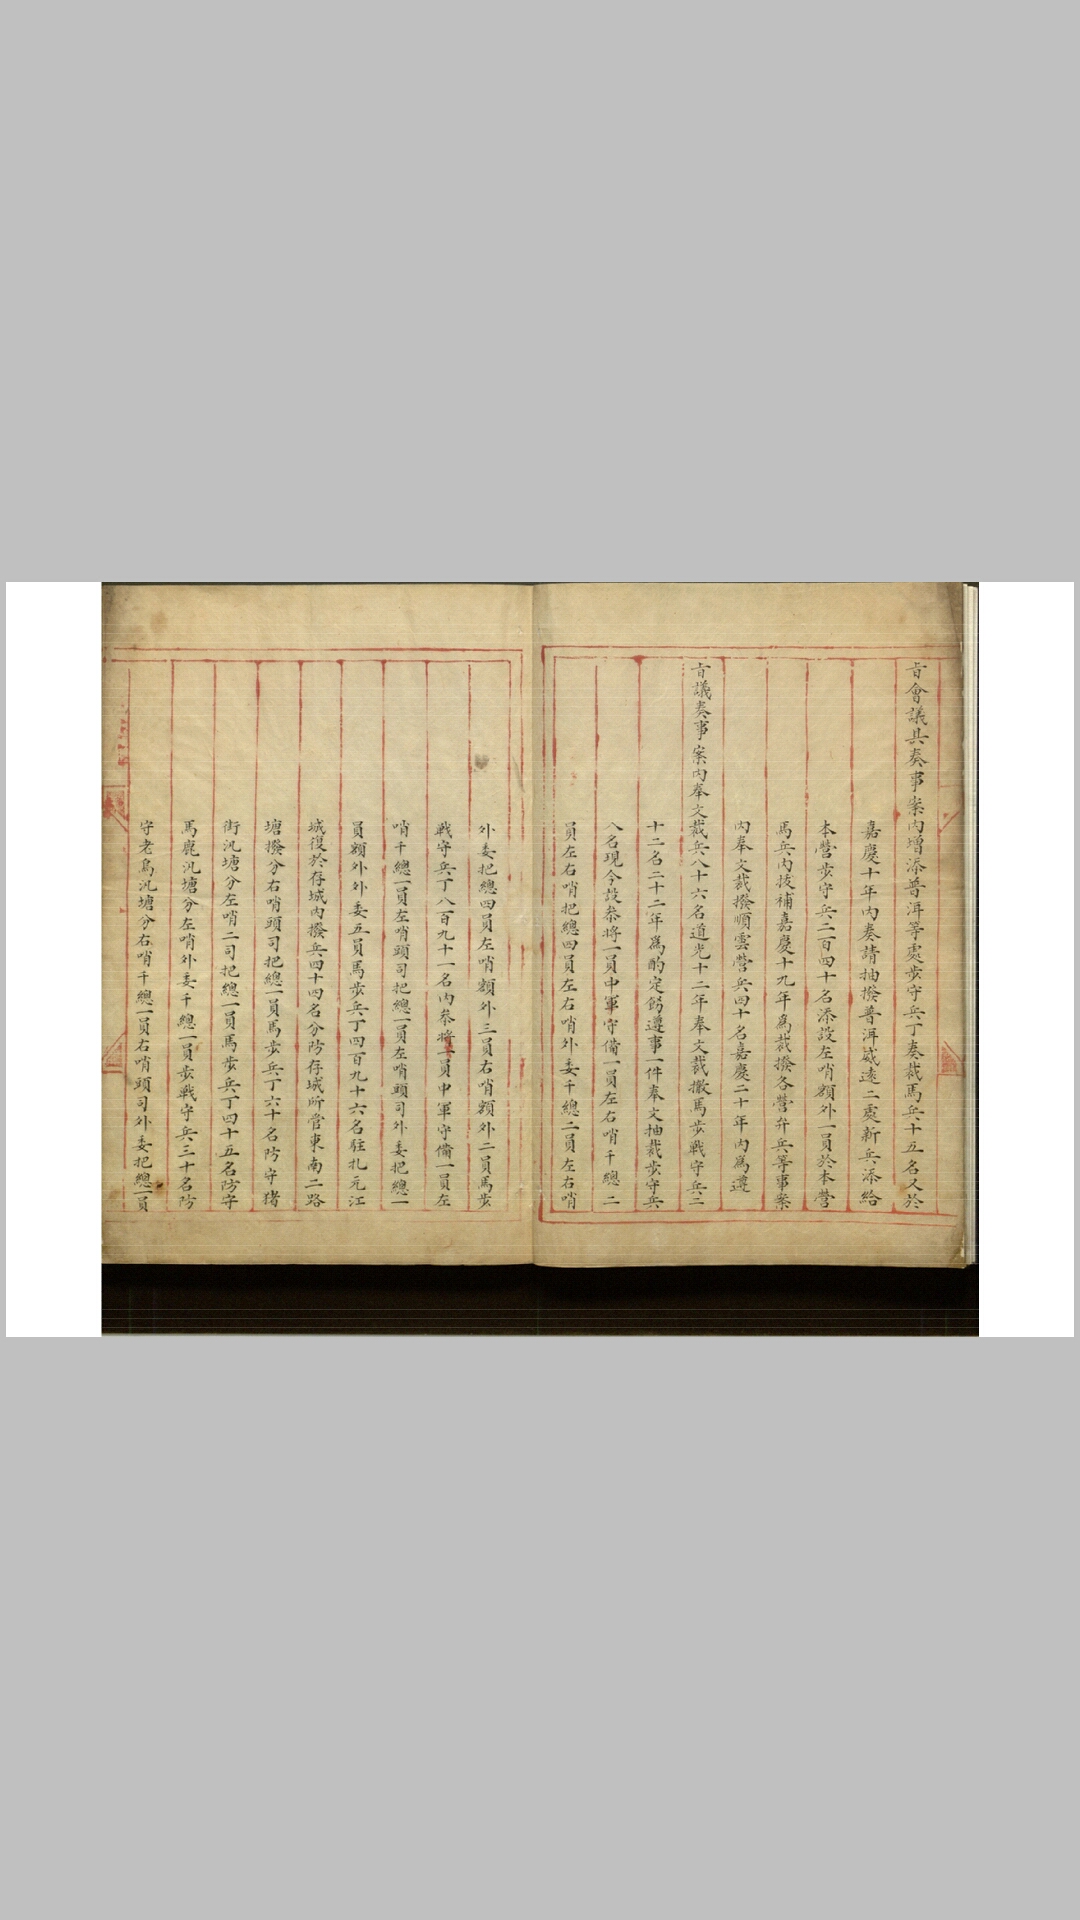 旨會議具奏事案內增添普洱等處步守兵丁奏裁馬兵十五名又於
嘉慶十年內奏請抽撥普洱威遠二處新兵添給
本營步守兵二百四十名添設左哨額外一員於本營
馬兵內拔補嘉慶十九年為裁撥各營弁兵等事案
內奉文裁撥順雲營兵四十名嘉慶二十年內為遵
旨議奏事案內奉文裁兵八十六名道光十二年奉文裁撤馬步戰守兵二
十二名二十二年為酌定餉遵事一件奉文抽裁步守兵
八名現今設叅將一員中軍守備一員左右哨千總二
員左右哨把總四員左右哨外委千總二員左右哨
外委把總四員左哨額外三員右哨額外二員馬步
戰守兵丁八百九十一名內叅將一員中軍守備一員左
哨千總一員左哨頭司把總一員左哨頭司外委把總一
員額外外委五員馬步兵丁四百九十六名駐扎元江
城復於存城內撥兵四十四名分防存城所管東南二路
塘撥分右哨頭司把總一員馬步兵丁六十名防守猪
街汛塘分左哨二司把總一員馬步兵丁四十五名防守
馬鹿汛塘分左哨外委千總一員步戰守兵三十名防
守老烏汛塘分右哨千總一員右哨頭司外委把總一員